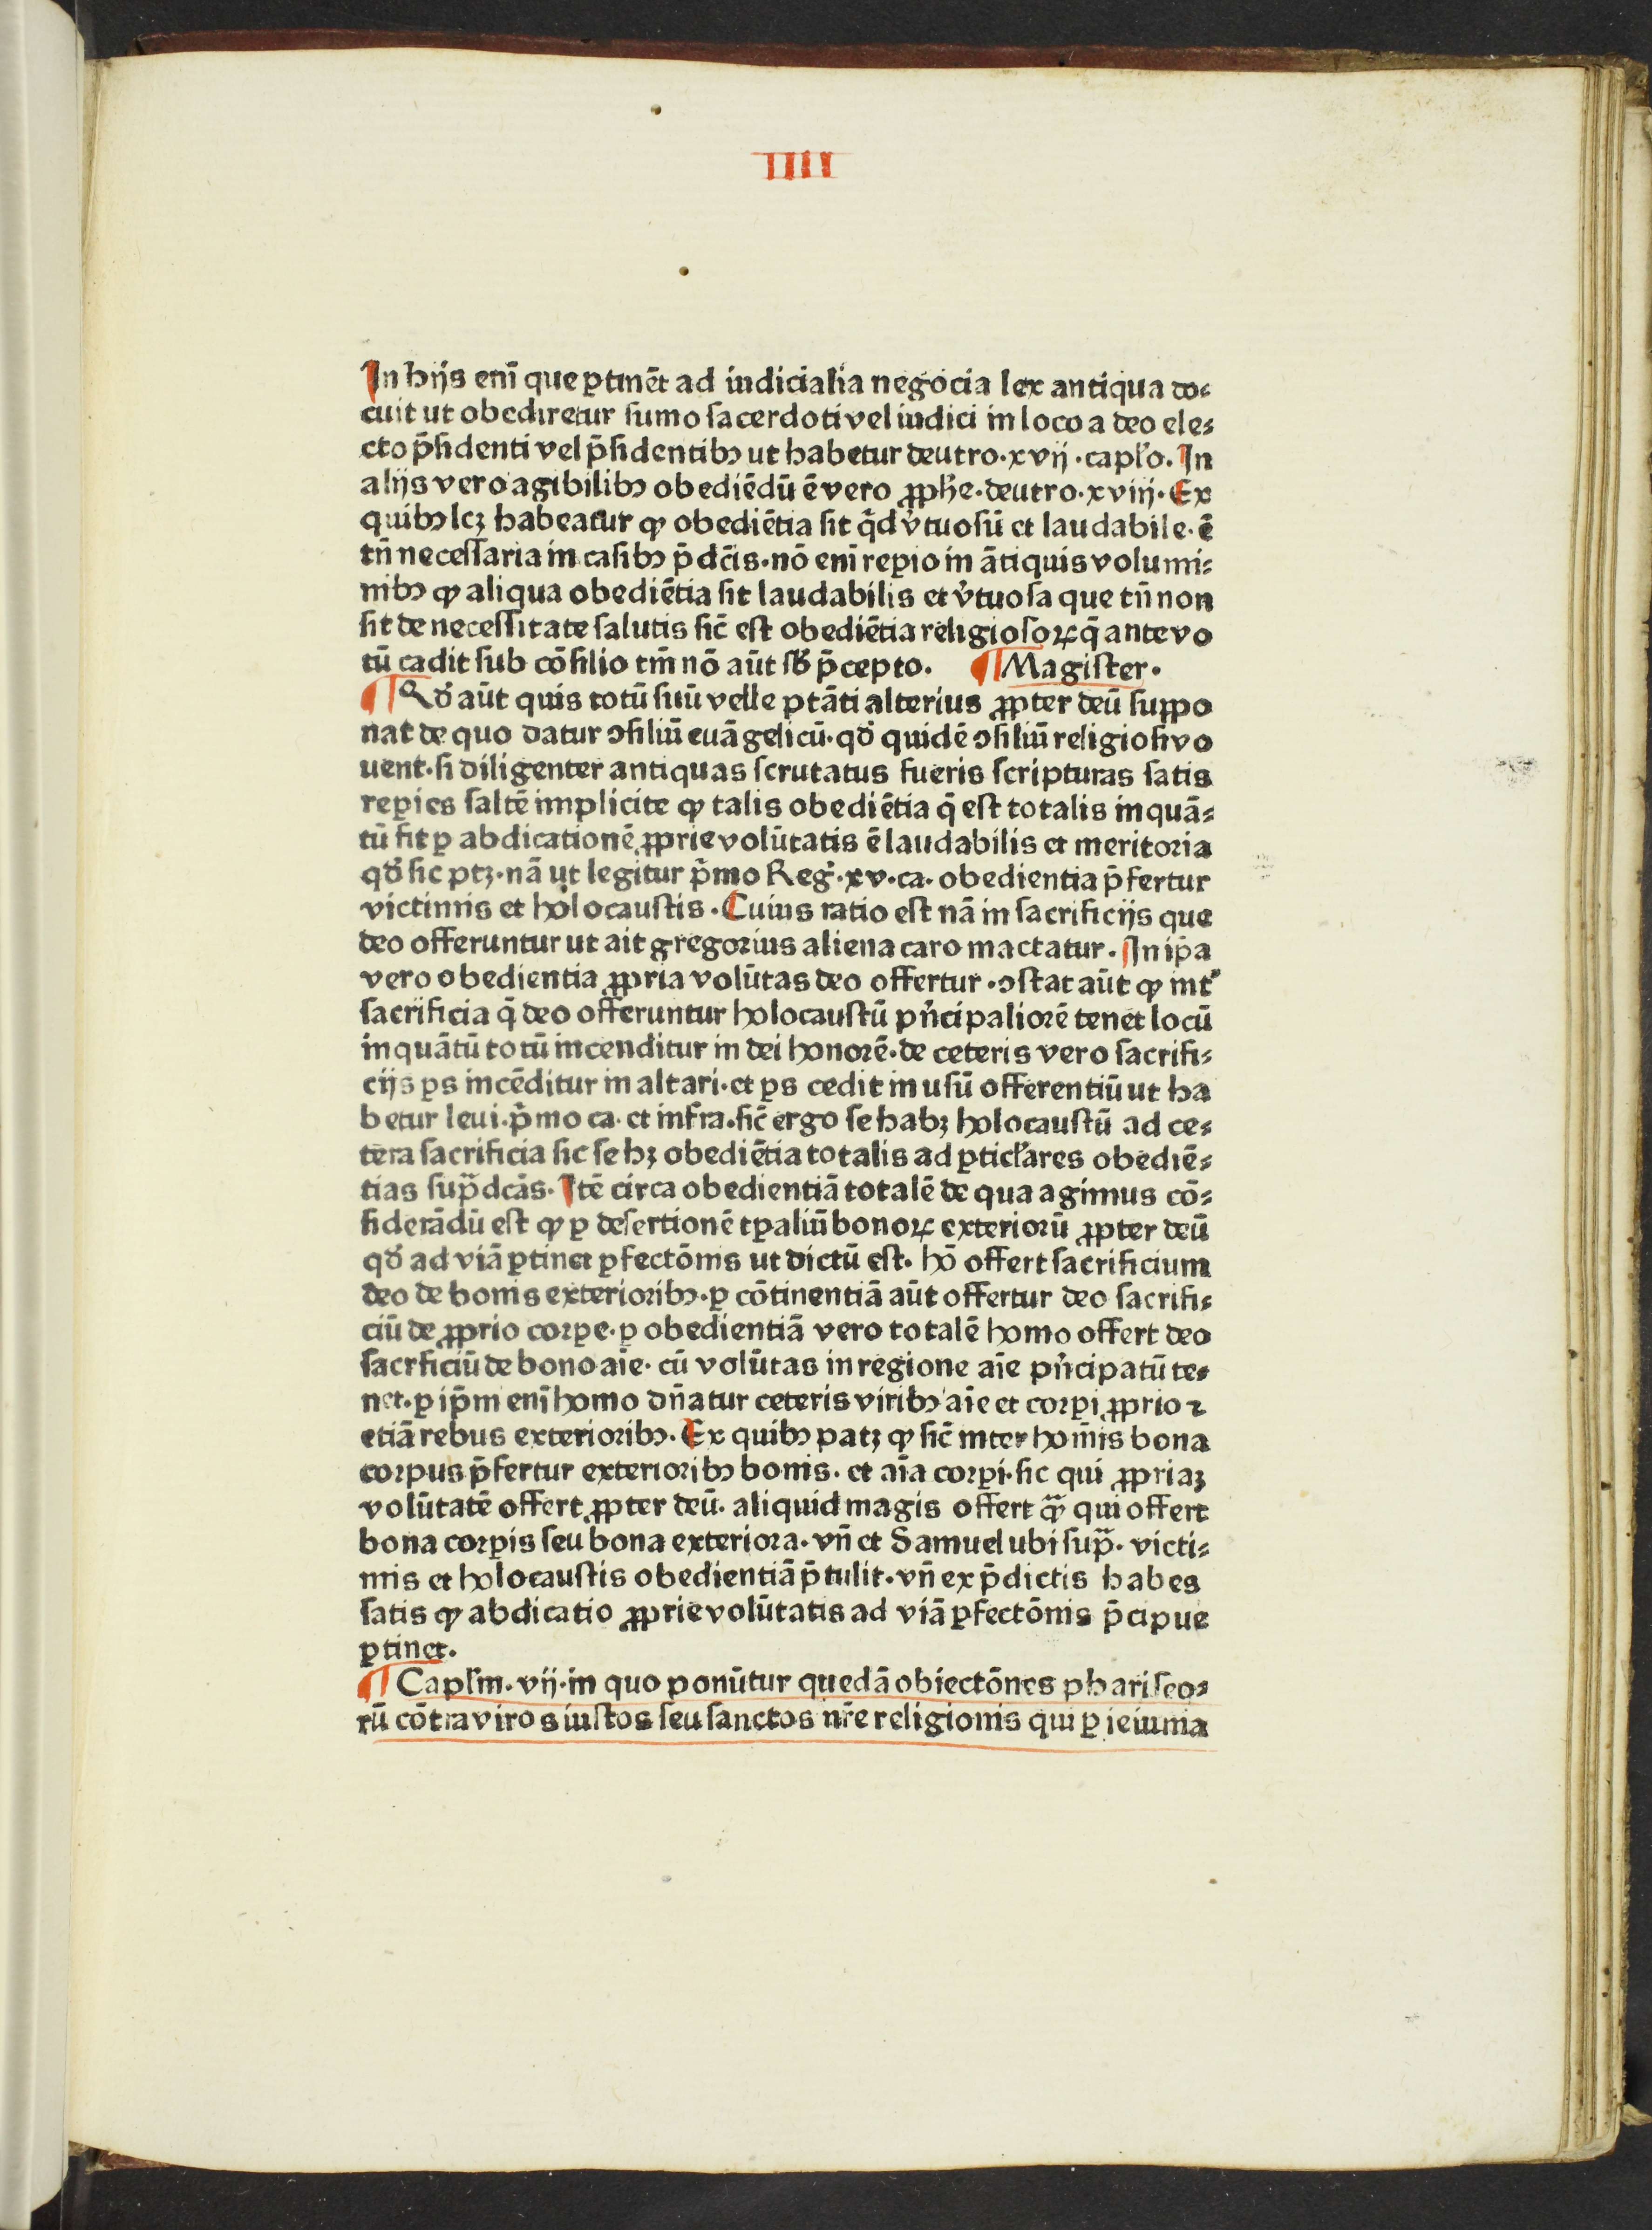 IIII
In hijs enī que ꝑtinēt ad iudicialia negocia lex antiqua do⸗
cuit ut obediretur sumo sacerdoti vel iudici in loco a deo ele⸗
cto p̄sidenti vel p̄sidentibꝰ ut habetur deutro·xvij·capľo. In
alijs vero agibilibꝰ obediēdū ē vero ꝓphe̅·deutro·xviij· Ex
quibꝰ lcꝫ habeatur ꝙ obediētia sit q̄d v̓tuosū et laudabile· ē
tn̄ necessaria in casibꝰ p̄dc̄is·nō enī reꝑio in ātiquis volumi⸗
nibꝰ ꝙ aliqua obediētia sit laudabilis et v̓tuosa que tn̄ non
sit de necessitate salutis sic̄ est obediētia religiosoꝝ q̄ ante vo
tū cadit sub cōsilio tm̄ nō aūt sƀ p̄cepto. ¶ Magister.
¶ Qđ aūt quis totū suū velle ptāti alterius ꝓpter deū suppo
nat de quo datur ꝯsiliū euāgelicū· qđ quidē ꝯsiliū religiosi vo
uent·si diligenter antiquas scrutatus fueris scripturas satis
reꝑies saltē implicite ꝙ talis obediētia q̄ est totalis inquā⸗
tū fit ꝑ abdicationē ꝓprie volūtatis ē laudabilis et meritoria
qđ sic ptꝫ·nā ut legitur p̄mo Reg̓·xv·ca· obedientia p̄fertur
victimis et holocaustis. Cuius ratio est nā in sacrificijs que
deo offeruntur ut ait gregorius aliena caro mactatur. In ip̄a
vero obedientia ꝓpria volūtas deo offertur·ꝯstat aūt ꝙ int̓
sacrificia q̄ deo offeruntur holocaustū pn̓cipaliorē tenet locū
inquātū totū incenditur in dei honorē·de ceteris vero sacrifi⸗
cijs ꝑs incēditur in altari·et ꝑs cedit in usū offerentiū ut ha
betur leui·p̄mo ca· et infra·sic̄ ergo se habꝫ holocaustū ad ce⸗
tera sacrificia sic se hꝫ obediētia totalis ad ꝑticľares obediē⸗
tias sup̄dcās. Itē circa obedientiā totalē de qua agimus cō⸗
siderādū est ꝙ ꝑ desertionē tꝑaliū bonoꝝ exteriorū ꝓpter deū
qđ ad viā ꝑtinet ꝑfectōnis ut dictū est· hō offert sacrificium
deo de bonis exterioribꝰ·ꝑ cōtinentiā aūt offertur deo sacrifi⸗
ciū de ꝓprio corꝑe·ꝑ obedientiā vero totalē homo offert deo
sacrficiū de bono aīe· cū volūtas in regione aīe pn̓cipatū te⸗
net·ꝑ ip̄m enī homo dn̄atur ceteris viribꝰ aīe et corꝑi ꝓprio ⁊
etiā rebus exterioribꝰ. Ex quibꝰ patꝫ ꝙ sic̄ inter hom̄is bona
corpus p̄fertur exterioribꝰ bonis· et aīa corꝑi·sic qui ꝓpriaꝫ
volūtatē offert ꝓpter deū· aliquid magis offert ꝙ̄ qui offert
bona corꝑis seu bona exteriora·vn̄ et Samuel ubi sup̄· victi⸗
mis et holocaustis obedientiā p̄tulit·vn̄ ex p̄dictis habes
satis ꝙ abdicatio ꝓprie volūtatis ad viā ꝑfectōnis p̄cipue
ꝑtinet.
¶ Capľm·vij·in quo ponūtur quedā obiectōnes phariseo⸗
rū cōtra viros iustos seu sanctos nr̄e religionis qui ꝑ ieiunia